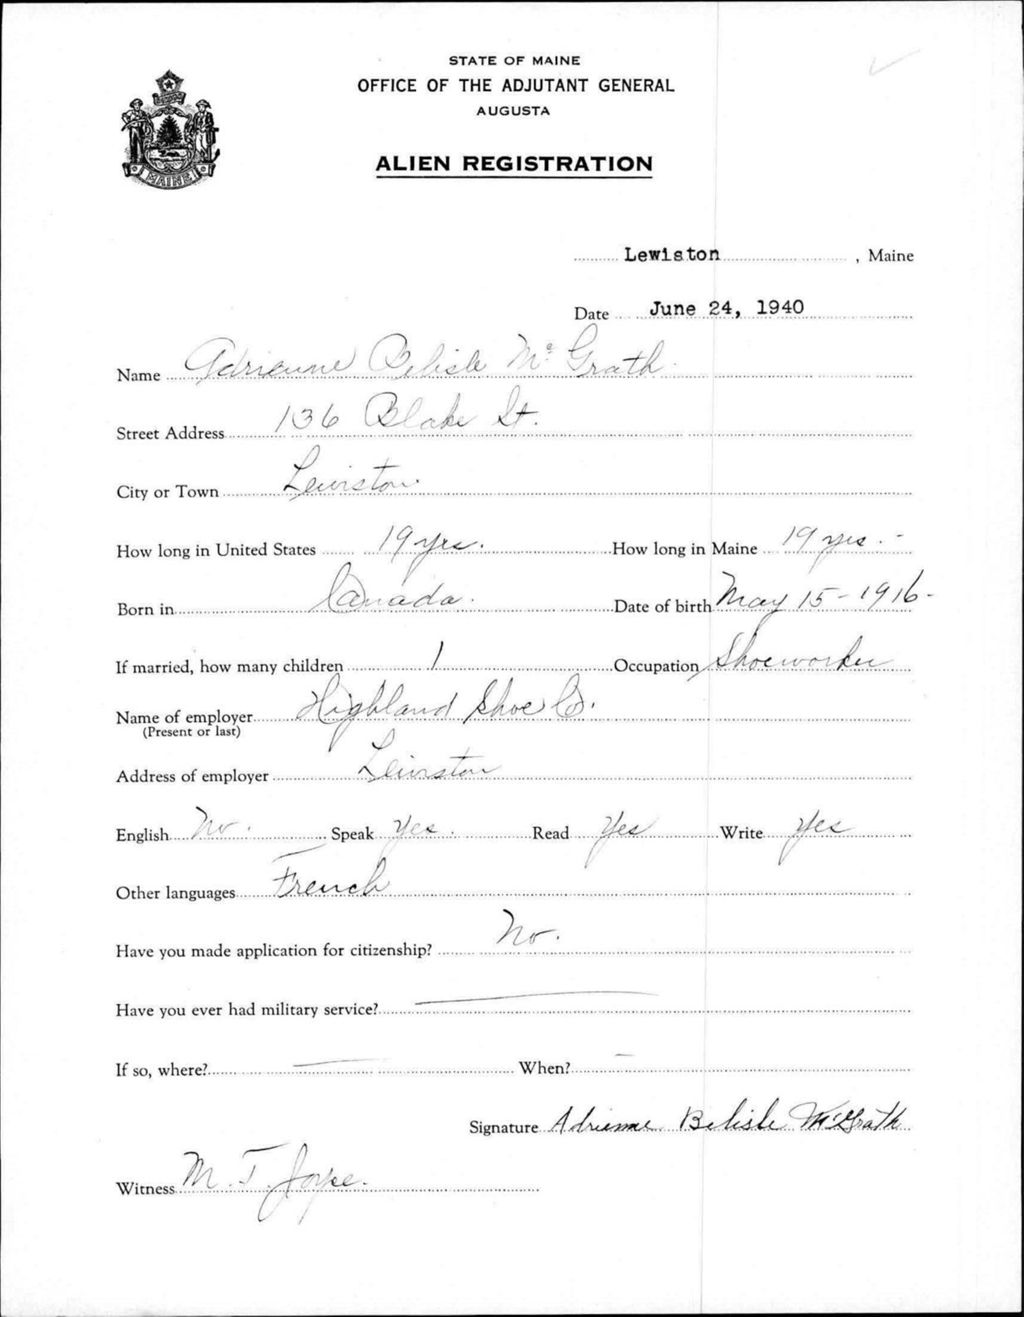 STATE OF MAINE
OFFICE OF THE ADJUTANT GENERAL
AUGUSTA
ALIEN REGISTRATION
MAINE
Lewiston, Maine
Date June 24, 1940
Name Adrienne Belisle McGrath
Street Address 136 Blake St.
City or Town Lewiston
How long in United States 19 yrs. How long in Maine 19 yrs. -
Born in Canada. Date of birth May 15 - 1916 -
If married, how many children 1 Occupation Shoeworker
Name of employer Highland Shoe Co.
(Present or last)
Address of employer Lewiston
English No. Speak Yes. Read Yes Write Yes
Other languages French
Have you made application for citizenship? No.
Have you ever had military service? —
If so, where? — When? —
Signature Adrienne Belisle McGrath
Witness M. T. Joyce.